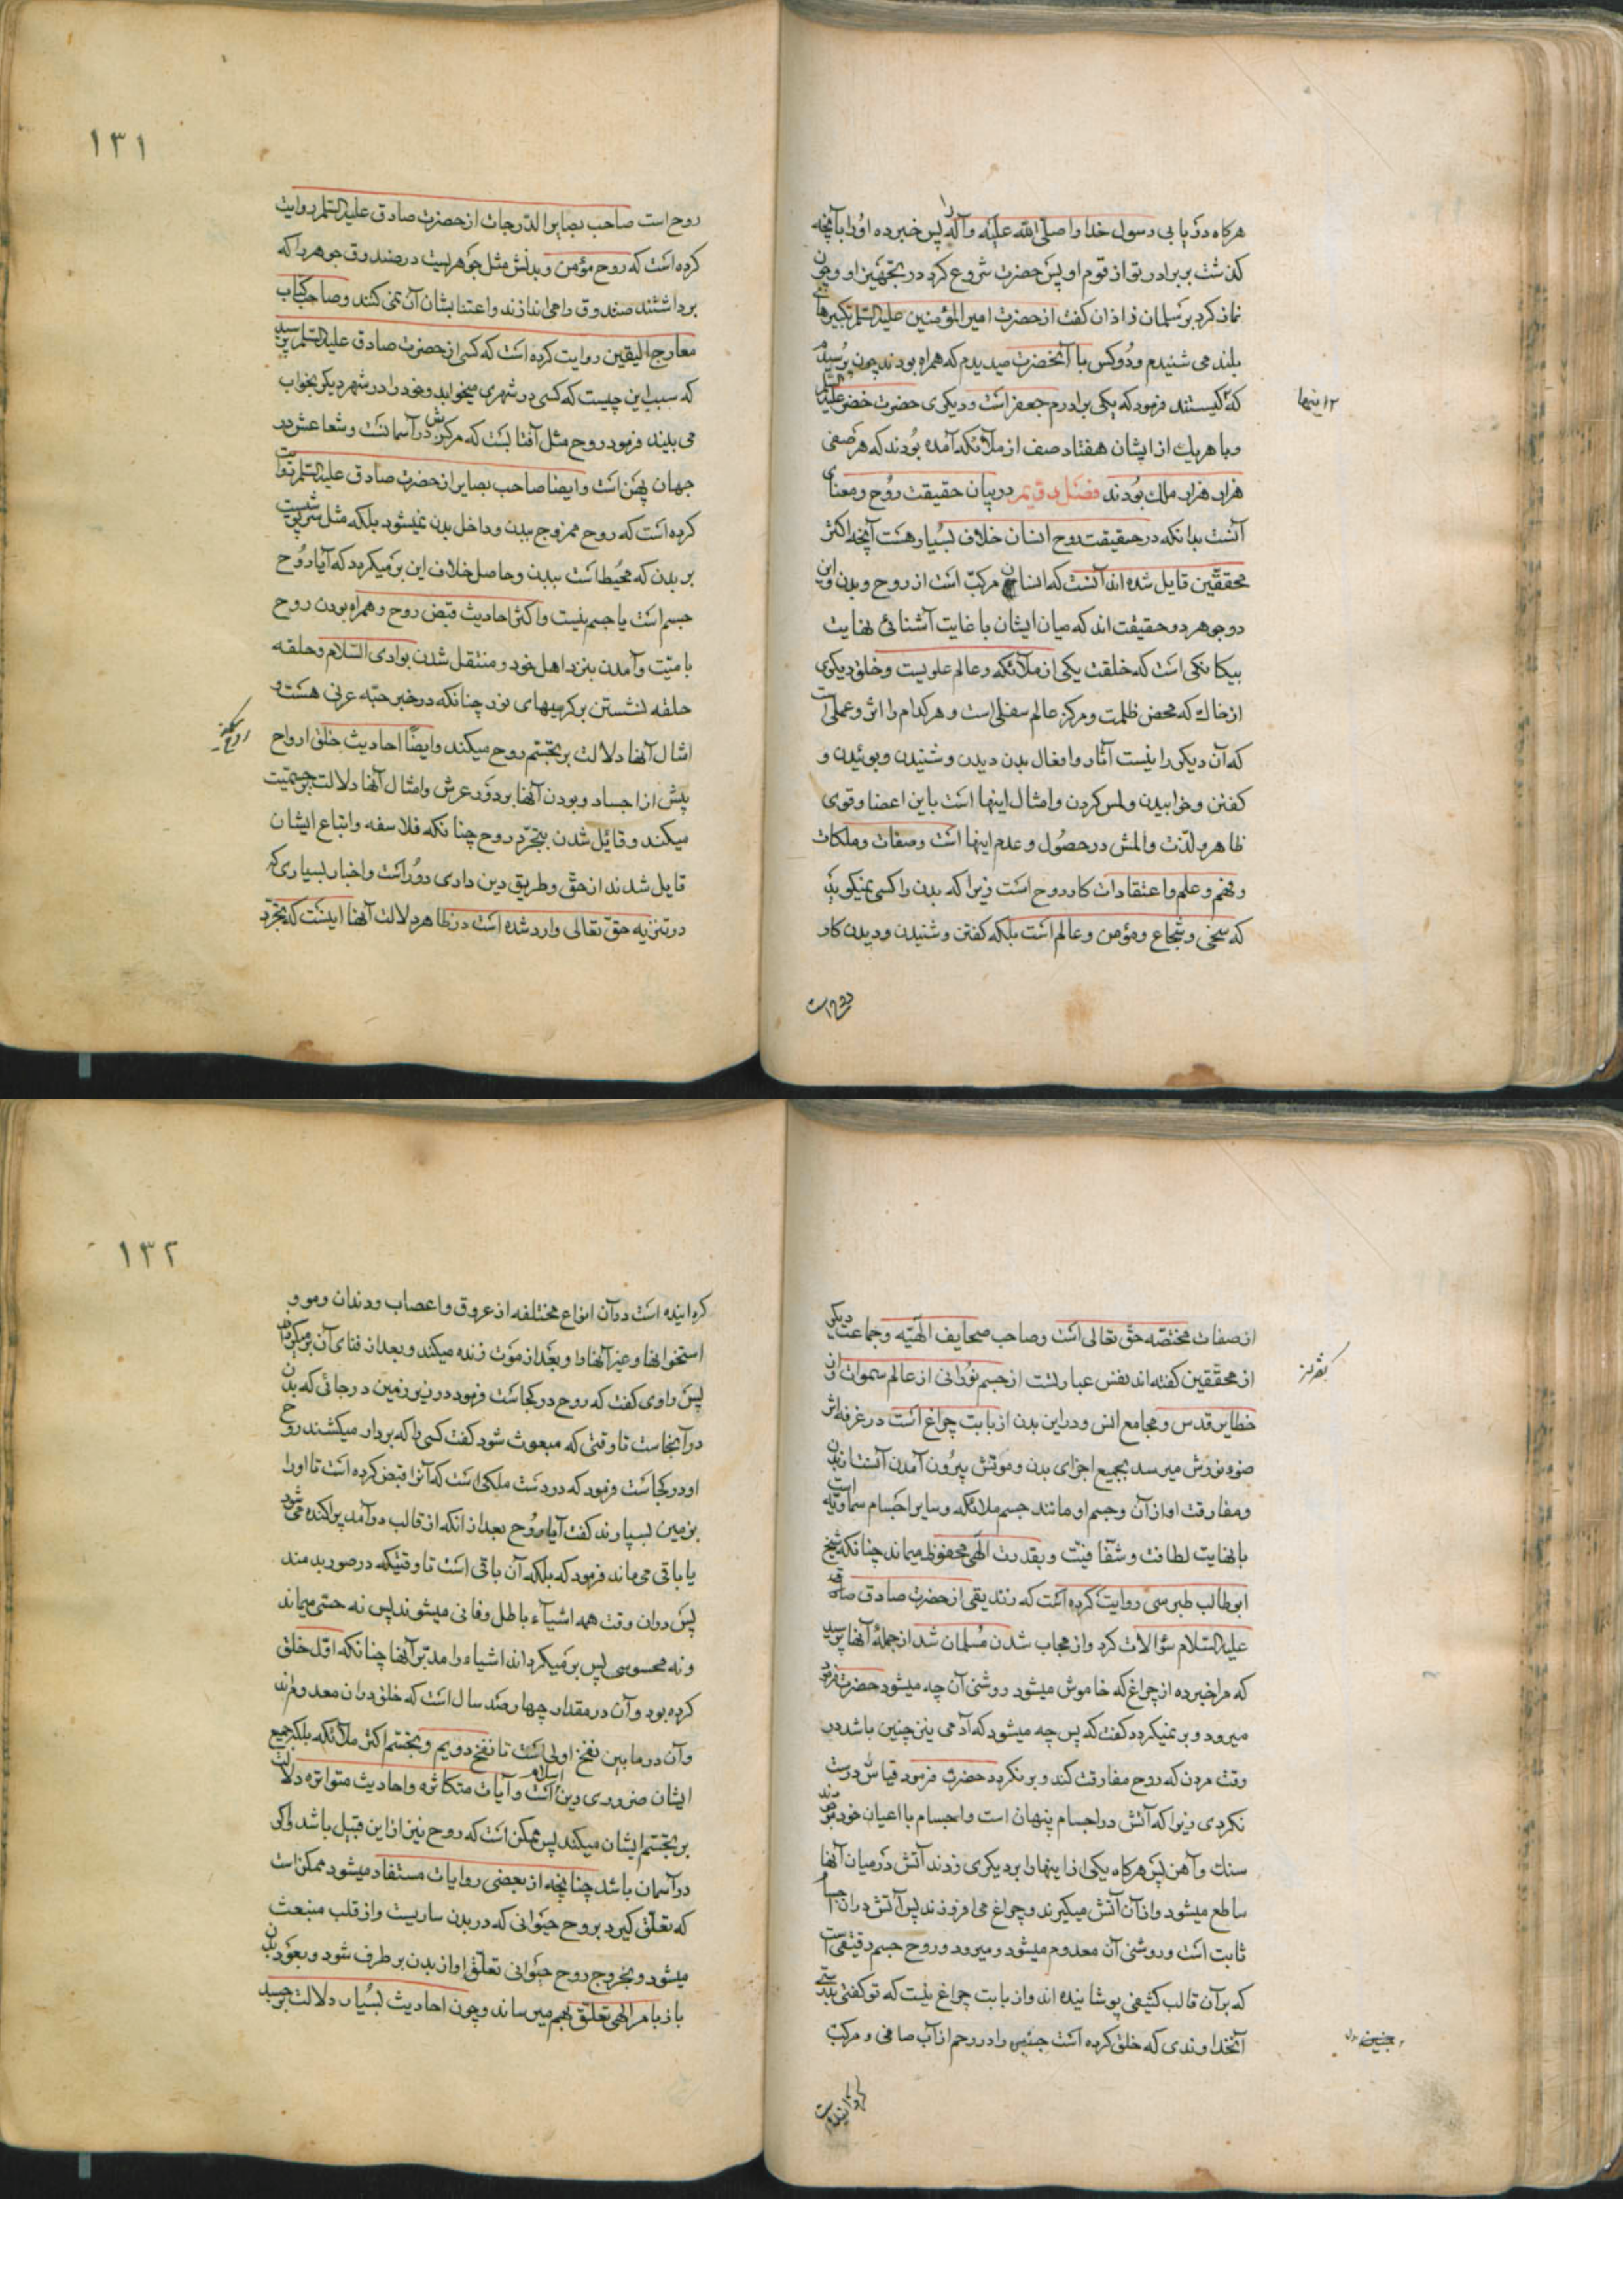 هرکاه دریابی رسول خدا را صلّی اللّه علیه وآله پس خبر ده او را بآنچه
کذشت بر برادر تو از قوم او پس حضرت شروع کرد در تجهیز او و چون
نماز کرد بر سلمان زاذان کفت از حضرت امیر المؤمنین علیه السّلم تکبیرهای
بلند می شنیدم و دُو کس با آنحضرت میدیدم که همراه بودند چون پرسیدم
که کیستند فرمود که یکی برادرم جعفر است و دیکری حضرت خضر علیه السّلم
اینها
و با هریك از ایشان هفتاد صف از ملائکه آمده بودند که هر صفی
هزار هزار ملك بودند فصل دویّم در بیان حقیقت روح و معنای
آنست بدانکه در حقیقت روح انسان خلاف بسیار هست آنچه اکثر
محققین قایل شده اند آنست که انسان مرکّب است از روح و بدن و این
دو جوهر دو حقیقت اند که میان ایشان با غایت آشنائی نهایت
بیکانکی است که خلقت یکی از ملائکه و عالم علویست و خلق دیکری
از خاك که محض ظلمت و مرکز عالم سفلی است و هر کدام را اثر و عملی است
که آن دیکری را نیست آثار و افعال بدن دیدن و شنیدن و بوئیدن و
کفتن و خوابیدن و لمس کردن و امثال اینها است باین اعضا و قوی
ظاهر و لذّت و المش در حصُول و عدم اینها است و صفات و ملکات
و فهم و علم و اعتقادات کار روح است زیرا که بدن را کسی نمیکوید
که سخی و شجاع و مؤمن و عالم است بلکه کفتن و شنیدن و دیدن کار
روح است
١٣١
روح است صاحب بصایر الدّرجات از حضرت صادق علیه السّلم روایت
کرده است که روح مؤمن و بدنش مثل جوهریست در صندوق جوهر را که
برداشتند صندوق را می اندازند و اعتنا بشان آن نمی کنند و صاحب کتاب
معارج الیقین روایت کرده است که کسی از حضرت صادق علیه السّلم پرسید
که سبب این چیست که کسی در شهری میخوابد و خود را در شهر دیکر بخواب
می بیند فرمود روح مثل آفتابست که مرکزش در آسمانست و شعاعش در
جهان پهن است و ایضا صاحب بصایر از حضرت صادق علیه السّلم روایت
کرده است که روح ممزوج ببدن و داخل بدن نمیشود بلکه مثل سرپوشیست
بر بدن که محیُط است ببدن و حاصل خلاف این بر میکردد که آیا روُح
جسم است یا جسم نیست و اکثر احادیث قبض روح و همراه بودن روح
با میّت و آمدن بنزد اهل خود و منتقل شدن بوادی السّلام و حلقه
حلقه نشستن بر کرسیهای نور چنانکه در خبر حبّه عرنی هست و
امثال آنها دلالت بر تجسّم روح میکند و ایضًا احادیث خلق ارواح
پیش از اجساد و بودن آنها بر دور عرش و امثال آنها دلالت بر جسمیّت
میکند و قائل شدن بتجرّد روح چنانکه فلاسفه و اتباع ایشان
قایل شدند از حقّ و طریق دین داری دوُر است و اخبار بسیاری که
در تنزیه حقّ تعالی وارد شده است در ظاهر دلالت آنها اینست که تجرّد
از صفات مختصّه حقّ تعالی است و صاحب صحایف الهیّه و جماعت دیکر
از محقّقین کفته اند نفس عبارتست از جسم نوُرانی از عالم سموات و از
خطایر قدس و مجامع انس و در این بدن از بابت چراغ است در غرفه اثر
ضوء نورش میرسد بجمیع اجزای بدن و موتش بیروُن آمدن آنست از بدن
و مفارقت او از آن و جسم او مانند جسم ملائکه و سایر اجسام سماویّه است
با نهایت لطافت و شفّافیّت و بقدرت الهی محفوظ میماند چنانکه شیخ
ابوطالب طبرسی روایت کرده است که زندیقی از حضرت صادق
علیه السّلام سؤالات کرد و از مجاب شدن مسلمان شد از جملهٔ آنها پرسید
که مرا خبر ده از چراغ که خاموش میشود روشنی آن چه میشود حضرت فرمود
میرود و بر نمیکردد کفت که پس چه میشود که آدمی نیز چنین باشد در
وقت مردن که روح مفارقت کند و بر نکردد حضرت فرمود قیاس درست
نکردی زیرا که آتش در اجسام پنهان است و اجسام با اعیان خود برجایند
سنك و آهن پس هرکاه یکی از اینها را بر دیکری زدند آتش در میان آنها
ساطع میشود و از آن آتش میکیرند و چراغ می افروزند پس آتش در ان اجسام
ثابت است و روشنی آن معدوم میشود و میرود و روح جسم رقیقی است
که بر آن قالب کثیفی پوشانیده اند و از بابت چراغ نیست که تو کفتی بدرستی
آنخداوندی که خلق کرده است جنین را در رحم از آب صافی و مرکّب
جنین
کردانیده است
١٣٢
کردانیده است در آن انواع مختلفه از عروق و اعصاب و دندان و مو و
استخوانها و غیر آنها را و بعد از موت زنده میکند و بعد از فنای آن بر میکرداند
پس راوی کفت که روح در کجاست فرمود در زیر زمین در جائی که بدن
در آنجاست تا وقتی که مبعوث شود کفت کسی را که بردار میکشند روح
او در کجاست فرمود که در دست ملکی است که آنرا قبض کرده است تا او را
بزمین بسپارند کفت آیا روُح بعد از انکه از قالب در آمد پراکنده می شود
یا باقی می ماند فرمود که بلکه آن باقی است تا وقتیکه در صور بدمند
پس در ان وقت همه اشیآء باطل و فانی میشوند پس نه حسّی میماند
و نه محسوسی پس بر میکرداند اشیاء را مدبّر آنها چنانکه اوّل خلق
کرده بود و آن در مقدار چهار صد سال است که خلق در ان معدومند
و آن در ما بین نفخ اولی است تا نفخ دویم و تجسّم اکثر ملائکه بلکه جمیع
ایشان ضروری دین اسلام است و آیات متکاثره و احادیث متواتره دلالت
بر تجسّم ایشان میکند پس ممکن است که روح نیز از این قبیل باشد و اکر
در آسمان باشد چنانچه از بعضی روایات مستفاد میشود ممکن است
که تعلّق کیرد بروح حیوانی که در بدن ساریست و از قلب منبعث
میشود و بخروج روح حیوانی تعلّق او از بدن بر طرف شود و بعود بدن
باز بامر الهی تعلّق بهم میرساند و چون احادیث بسیار دلالت بر جسد